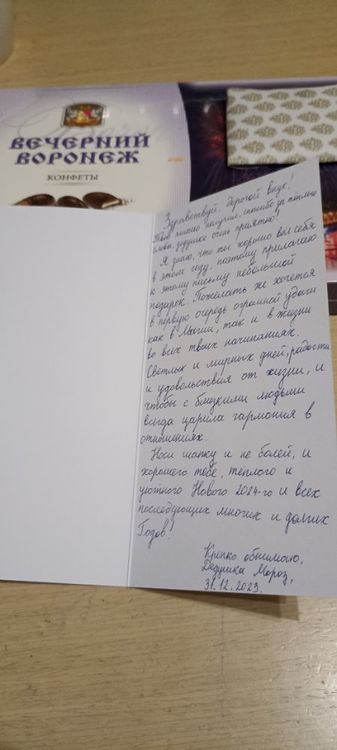 ВЕЧЕРНИЙ
ВОРОНЕЖ
КОНФЕТЫ
Здравствуй, дорогой внук!
Твоё письмо получил, спасибо за тёплые
слова, дедушке очень приятно!
Я знаю, что ты хорошо вел себя
в этом году, поэтому прилагаю
к этому письму небольшой
подарок. Пожелать же хочется
в первую очередь огромной удачи
как в Магии, так и в жизни
во всех твоих начинаниях.
Светлых и мирных дней, радости
и удовольствия от жизни, и
чтобы с близкими людьми
всегда царила гармония в
отношениях.
Носи шапку и не болей, и
хорошего тебе, тёплого и
уютного Нового 2024-го и всех
последующих многих и долгих
Годов!
Крепко обнимаю,
Дедушка Мороз,
31.12.2023.